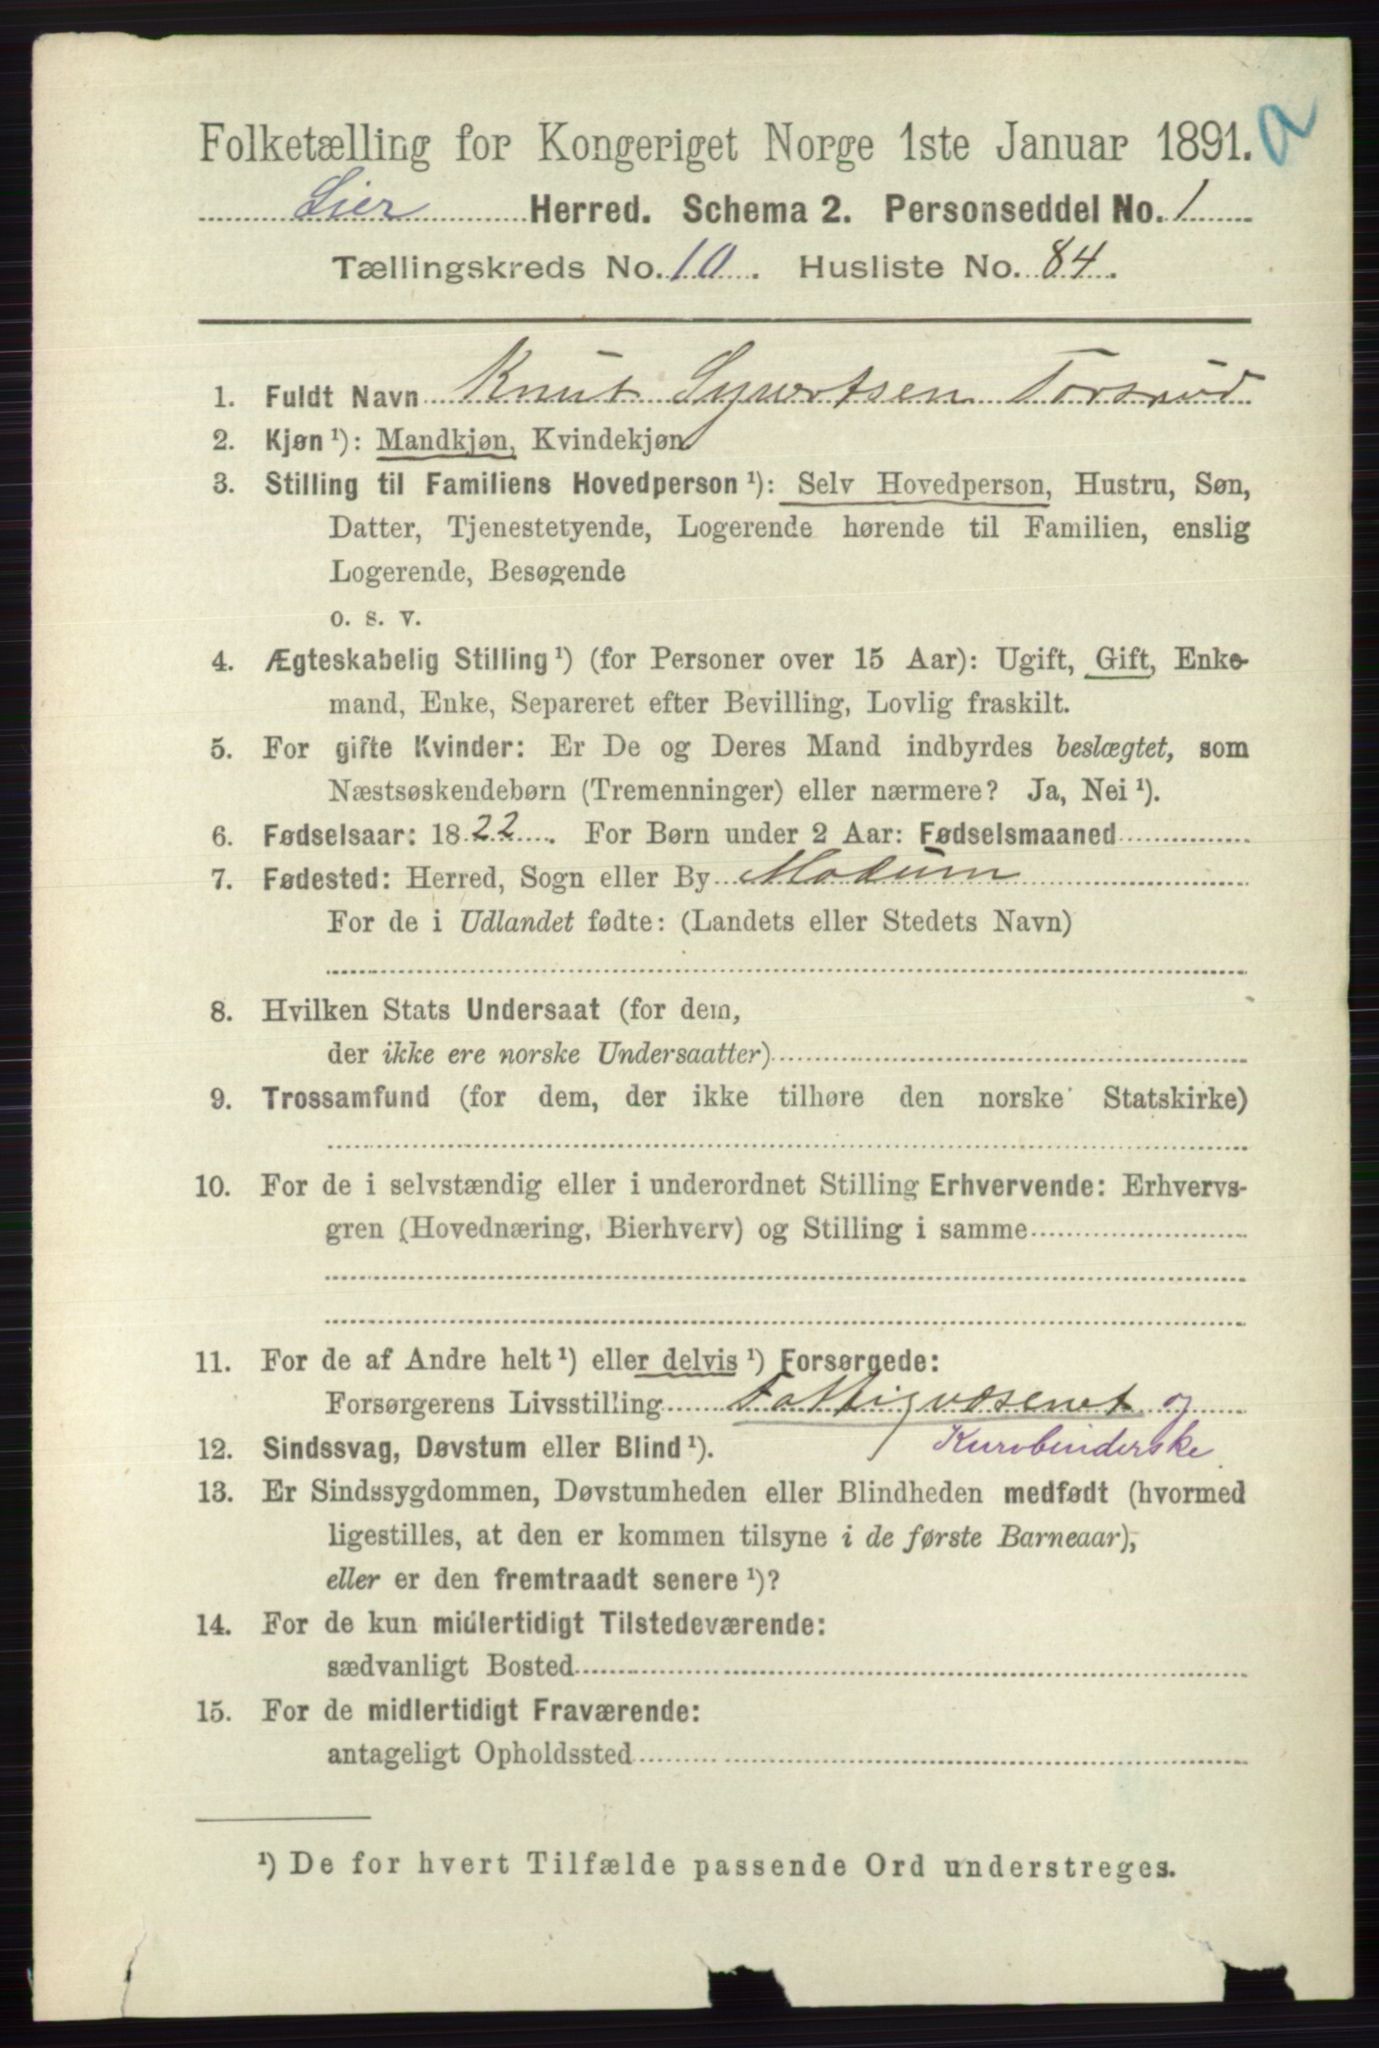 Folketælling for Kongeriget Norge 1ste Januar 1891. a
Lier Herred. Schema 2. Personseddel No. 1
Tællingskreds No. 10. Husliste No. 84.
1. Fuldt Navn Knut Syvertsen Torsrud
2. Kjøn ¹): Mandkjøn, Kvindekjøn
3. Stilling til Familiens Hovedperson ¹): Selv Hovedperson, Hustru, Søn,
Datter, Tjenestetyende, Logerende hørende til Familien, enslig
Logerende, Besøgende
o. s. v.
4. Ægteskabelig Stilling ¹) (for Personer over 15 Aar): Ugift, Gift, Enke-
mand, Enke, Separeret efter Bevilling, Lovlig fraskilt.
5. For gifte Kvinder: Er De og Deres Mand indbyrdes beslægtet, som
Næstsøskendebørn (Tremenninger) eller nærmere? Ja, Nei ¹).
6. Fødselsaar: 1822. For Børn under 2 Aar: Fødselsmaaned
7. Fødested: Herred, Sogn eller By Modum
For de i Udlandet fødte: (Landets eller Stedets Navn)
8. Hvilken Stats Undersaat (for dem,
der ikke ere norske Undersaatter)
9. Trossamfund (for dem, der ikke tilhøre den norske Statskirke)
10. For de i selvstændig eller i underordnet Stilling Erhvervende: Erhvervs-
gren (Hovednæring, Bierhverv) og Stilling i samme
11. For de af Andre helt ¹) eller delvis ¹) Forsørgede:
Forsørgerens Livsstilling Fattigvæsenet og
Kurvbinderske
12. Sindssvag, Døvstum eller Blind ¹).
13. Er Sindssygdommen, Døvstumheden eller Blindheden medfødt (hvormed
ligestilles, at den er kommen tilsyne i de første Barneaar),
eller er den fremtraadt senere ¹)?
14. For de kun midlertidigt Tilstedeværende:
sædvanligt Bosted
15. For de midlertidigt Fraværende:
antageligt Opholdssted
¹) De for hvert Tilfælde passende Ord understreges.